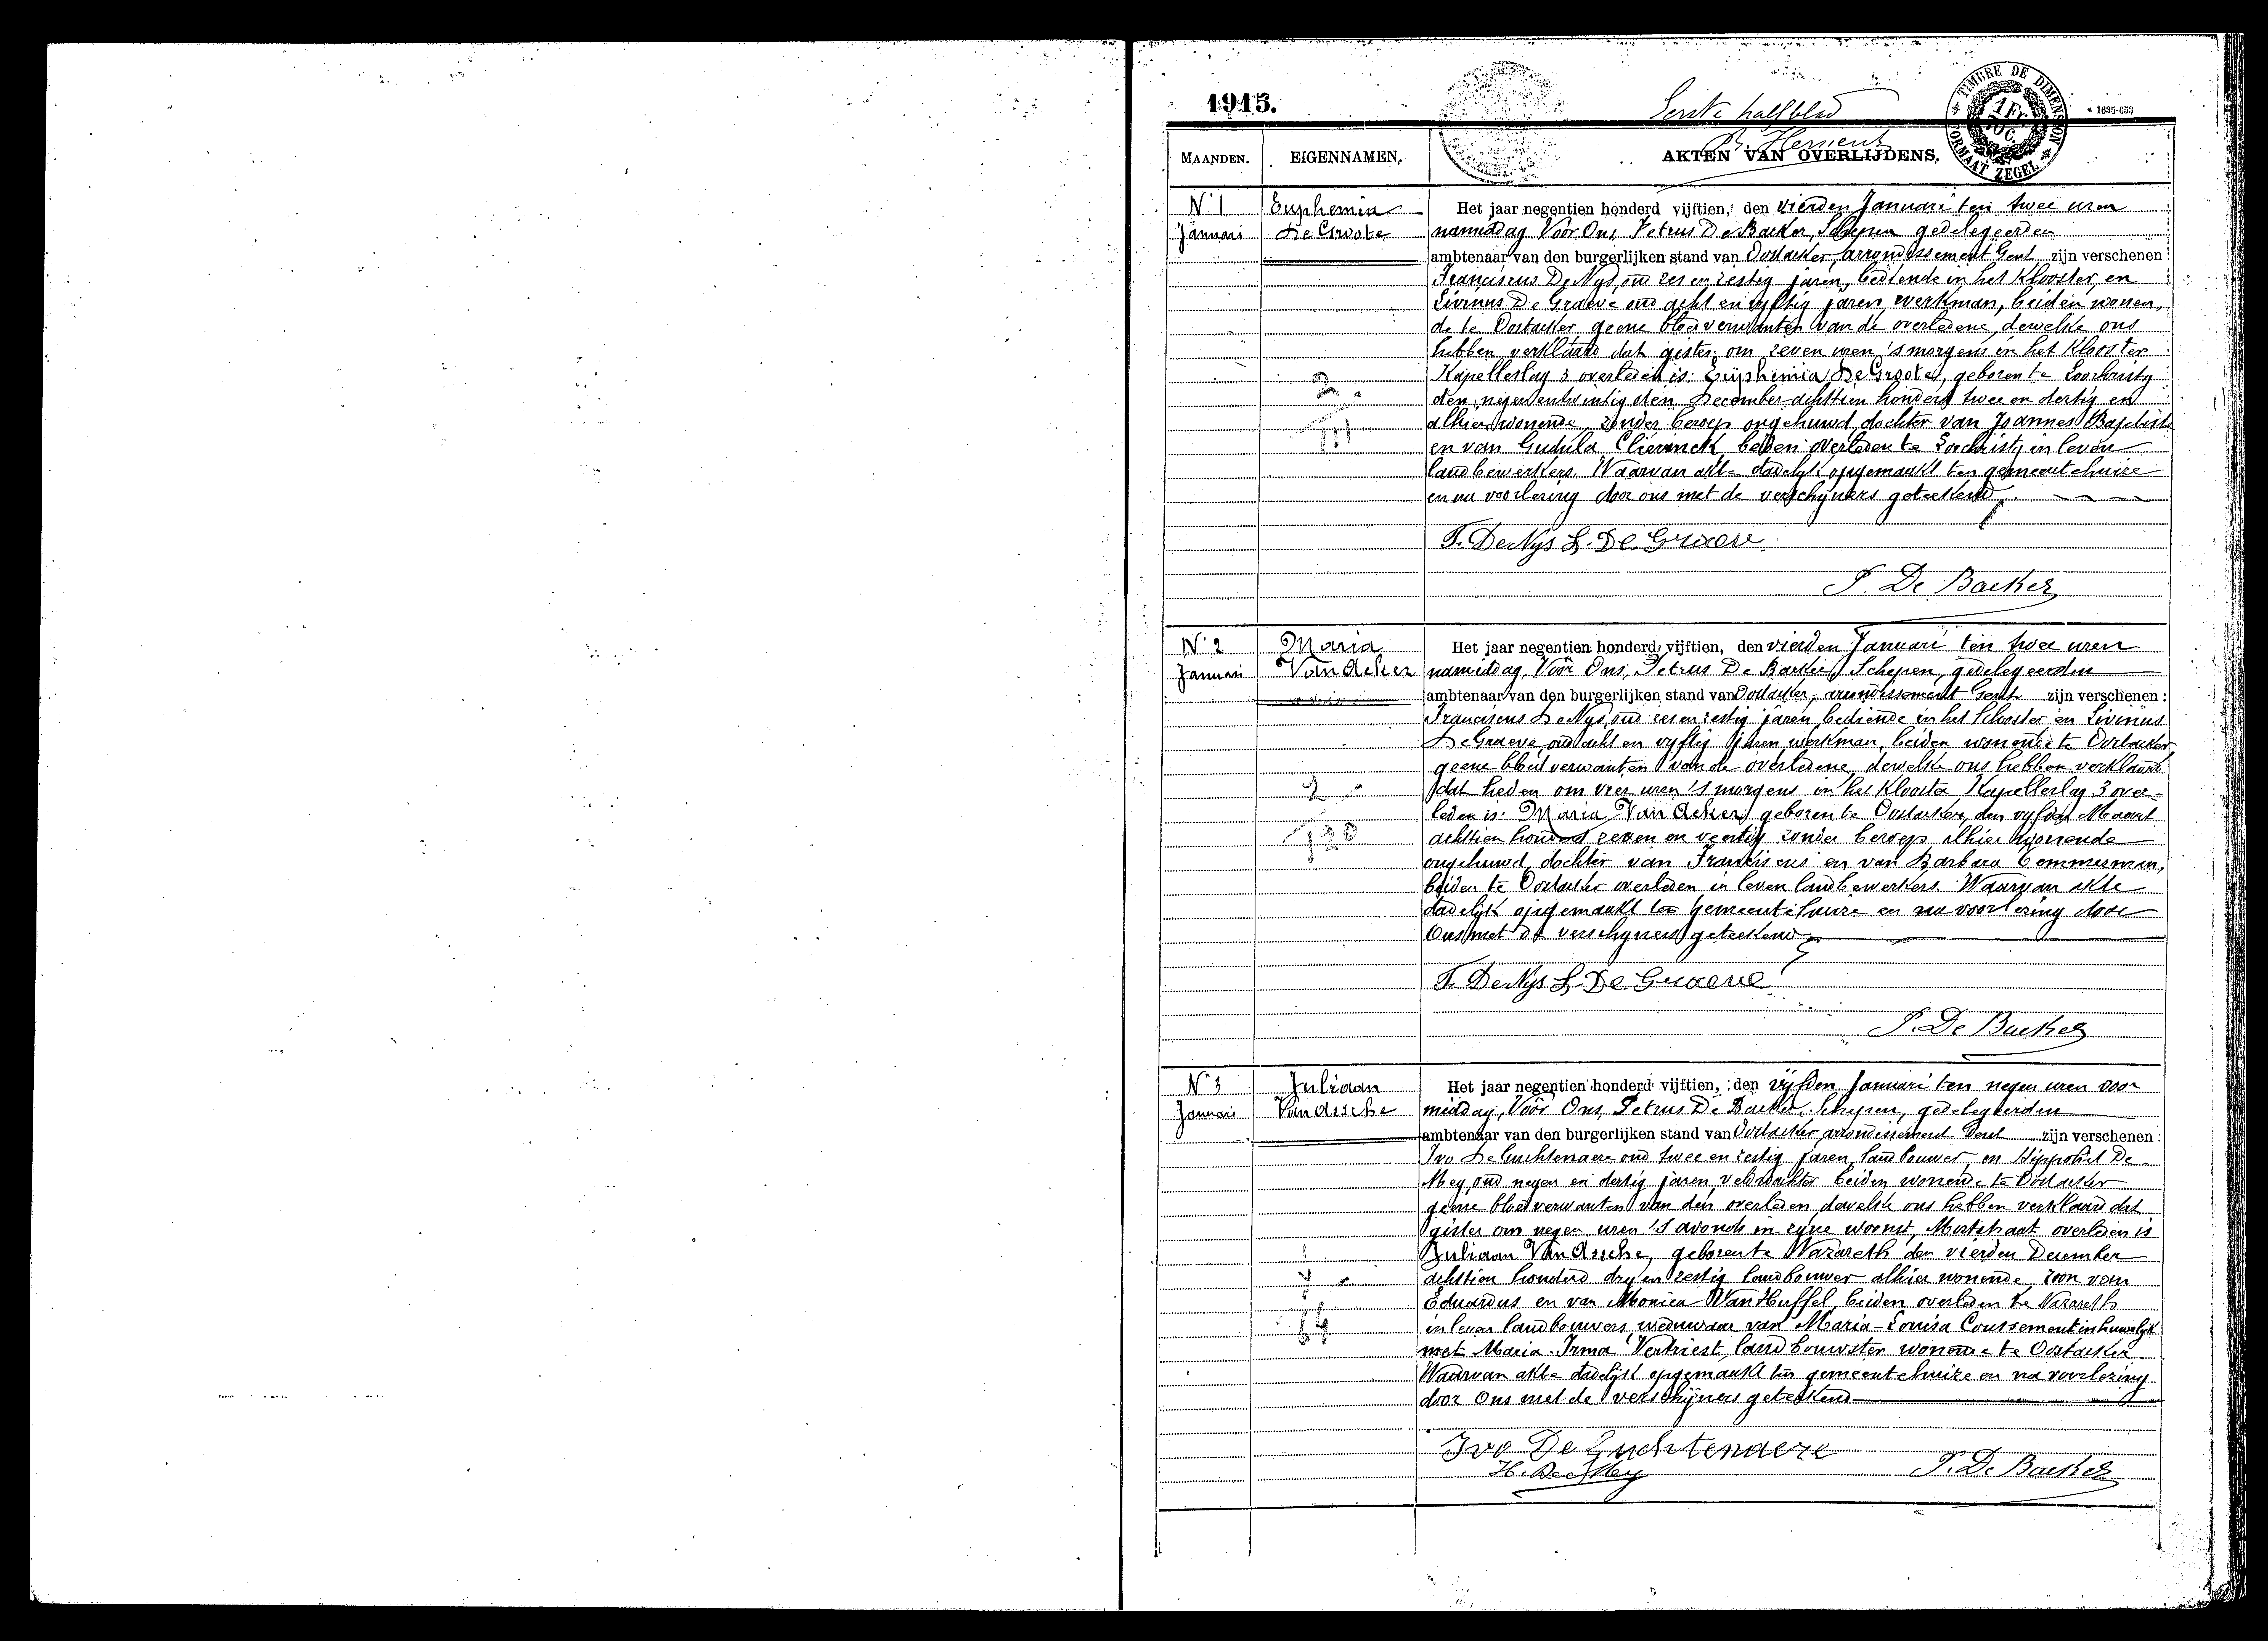 1915.
Eerste halfblad
TIMBRE DE DIMENSION
1 Fr.
10 C.
FORMAAT ZEGEL
1635-653
MAANDEN.
EIGENNAMEN.
AKTEN VAN OVERLIJDENS.
N° 1
Januari
Euphemia
De Groote
Het jaar negentien honderd vijftien, den vierden Januari ten twee uren
namiddag Vóór Ons, Petrus De Backer, Schepen gedelegeerden
ambtenaar van den burgerlijken stand van Oostacker arrondissement Gent zijn verschenen:
Franciscus De Nys, oud zes en zestig jaren, bediende in het Klooster, en
Livinus De Graeve oud acht en vyftig jaren, werkman, beiden wonen,
de te Oostacker, geene bloedverwanten van de overledene, dewelke ons
hebben verklaard dat gister om zeven uren 's morgens in het Klooster
Kapellerlag 3 overleden is: Euphemia De Groote, geboren te Loochristy
den negen en twintigsten December achttien honderd twee en dertig en
alhier wonende, zonder beroep ongehuwd, dochter van Joannes Baptiste
en van Gudula Clierinck, beiden overleden te Loochristy in leven
landbewerkers. Waarvan akte dadelijk opgemaakt ten gemeentehuize
en na voorlezing door ons met de verschijners geteekend.
F. De Nys L. De Graeve
P. De Backer
N° 2
Januari
Maria
Van Acker
Het jaar negentien honderd vijftien, den vierden Januari ten twee uren
namiddag, Vóór Ons, Petrus De Backer, Schepen, gedelegeerden
ambtenaar van den burgerlijken stand van Oostacker, arrondissement Gent zijn verschenen:
Franciscus De Nys, oud zes en zestig jaren bediende in het klooster en Livinus
De Graeve oud acht en vyftig jaren werkman, beiden wonende te Oostacker
geene bloedverwanten van de overledene dewelke ons hebben verklaard
dat heden om vier uren 's morgens in het Klooster Kapellerlag 3 over-
leden is: Maria Van Acker, geboren te Oostacker, den vyfden Maart
achttien honderd zeven en veertig zonder beroep alhier wonende
ongehuwd, dochter van Franciscus en van Barbara Temmerman,
beiden te Oostacker overleden in leven landbewerkers. Waarvan akte
dadelijk opgemaakt ten Gemeentehuize en na voorlezing door
Ons met de verschyners geteekend
F. De Nys L. De Graeve
P. De Backer
N° 3
Januari
Juliaan
Van Assche
Het jaar negentien honderd vijftien, den vijfden Januari ten negen uren voor
middag, Vóór Ons, Petrus De Backer, Schepen, gedelegeerden
ambtenaar van den burgerlijken stand van Oostacker arrondissement Gent zijn verschenen:
Ivo De Luchtenaere oud twee en zestig jaren, landbouwer en Hippoliet De
Mey, oud negen en dertig jaren, veldwachter beiden wonende te Oostacker
geene bloedverwanten van den overleden, dewelke ons hebben verklaard dat
gister om negen uren 's avonds in zyne woonst, overleden is
Juliaan Van Assche, geboren te Nazareth den vierden December
achttien honderd dry en zestig landbouwer alhier wonende, zoon van
Eduardus en van Monica Van Huffel, beiden overleden te Nazareth
in leven landbouwers, weduwaar van Maria-Louisa Coussement in huwelijk
met Maria-Irma Vertriest, landbouwster wonende te Oostacker.
Waarvan akte dadelijk opgemaakt ten gemeentehuize en na voorlezing
door Ons met de verschijners geteekend
Ivo De Luchtenaere
H. De Mey
P. De Backer